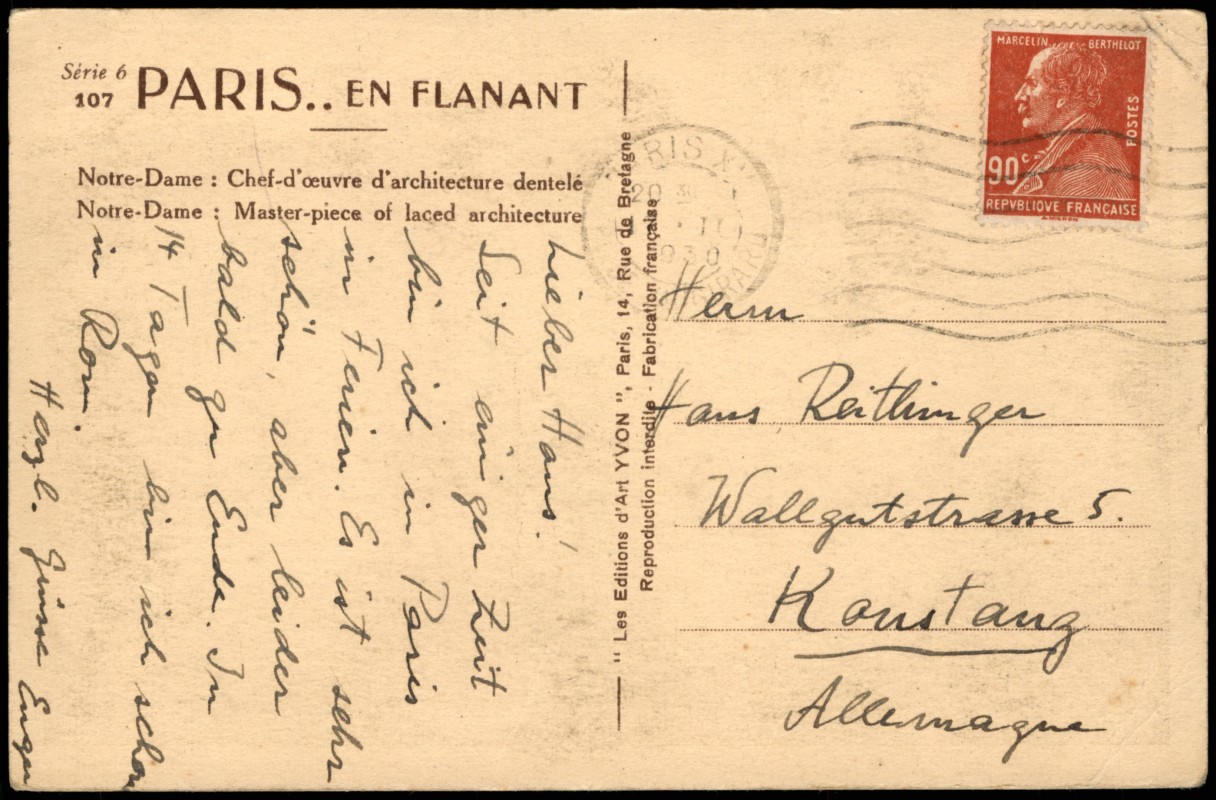 Série 6
107 PARIS.. EN FLANANT
Notre-Dame : Chef-d'œuvre d'architecture dentelé
Notre-Dame : Master-piece of laced architecture
Lieber Hans!
Seit einiger Zeit
bin ich in Paris
in Ferien. Es ist sehr
schön, aber leider
bald zu Ende. In
14 Tagen bin ich schon
in Rom.
Herzl. Grüsse Eugen
" Les Editions d'Art YVON ", Paris, 14, Rue de Bretagne
Reproduction interdite - Fabrication française
PARIS X
20 30
II
1930
MARCELIN BERTHELOT
POSTES
90 c
REPVBLIQVE FRANCAISE
Herrn
Hans Reitlinger
Wallgutstrasse 5.
Konstanz
Allemagne